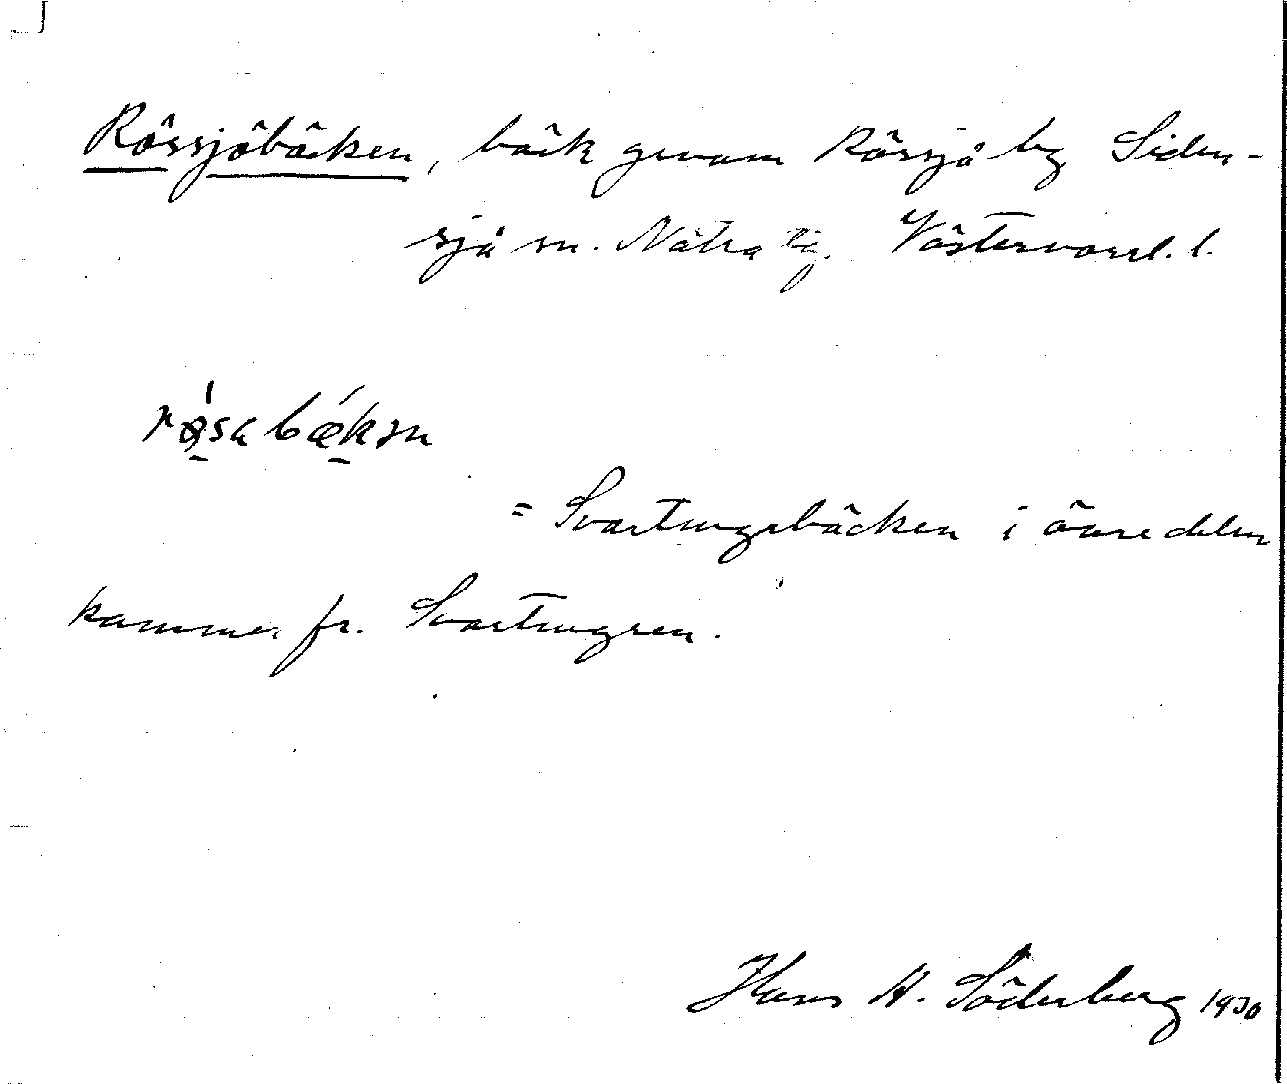 Rössjöbäcken, bäck genom Rössjö by Siden-
sjö sn. Nätra tg. Västernorrl. l.
røsabækən
= Svartungebäcken i övre delen
kommer fr. Svartungen.
Hans H. Söderberg 1930